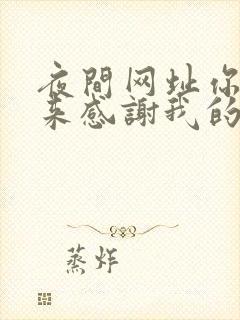 夜間网址你
来感謝我的
蒸炸